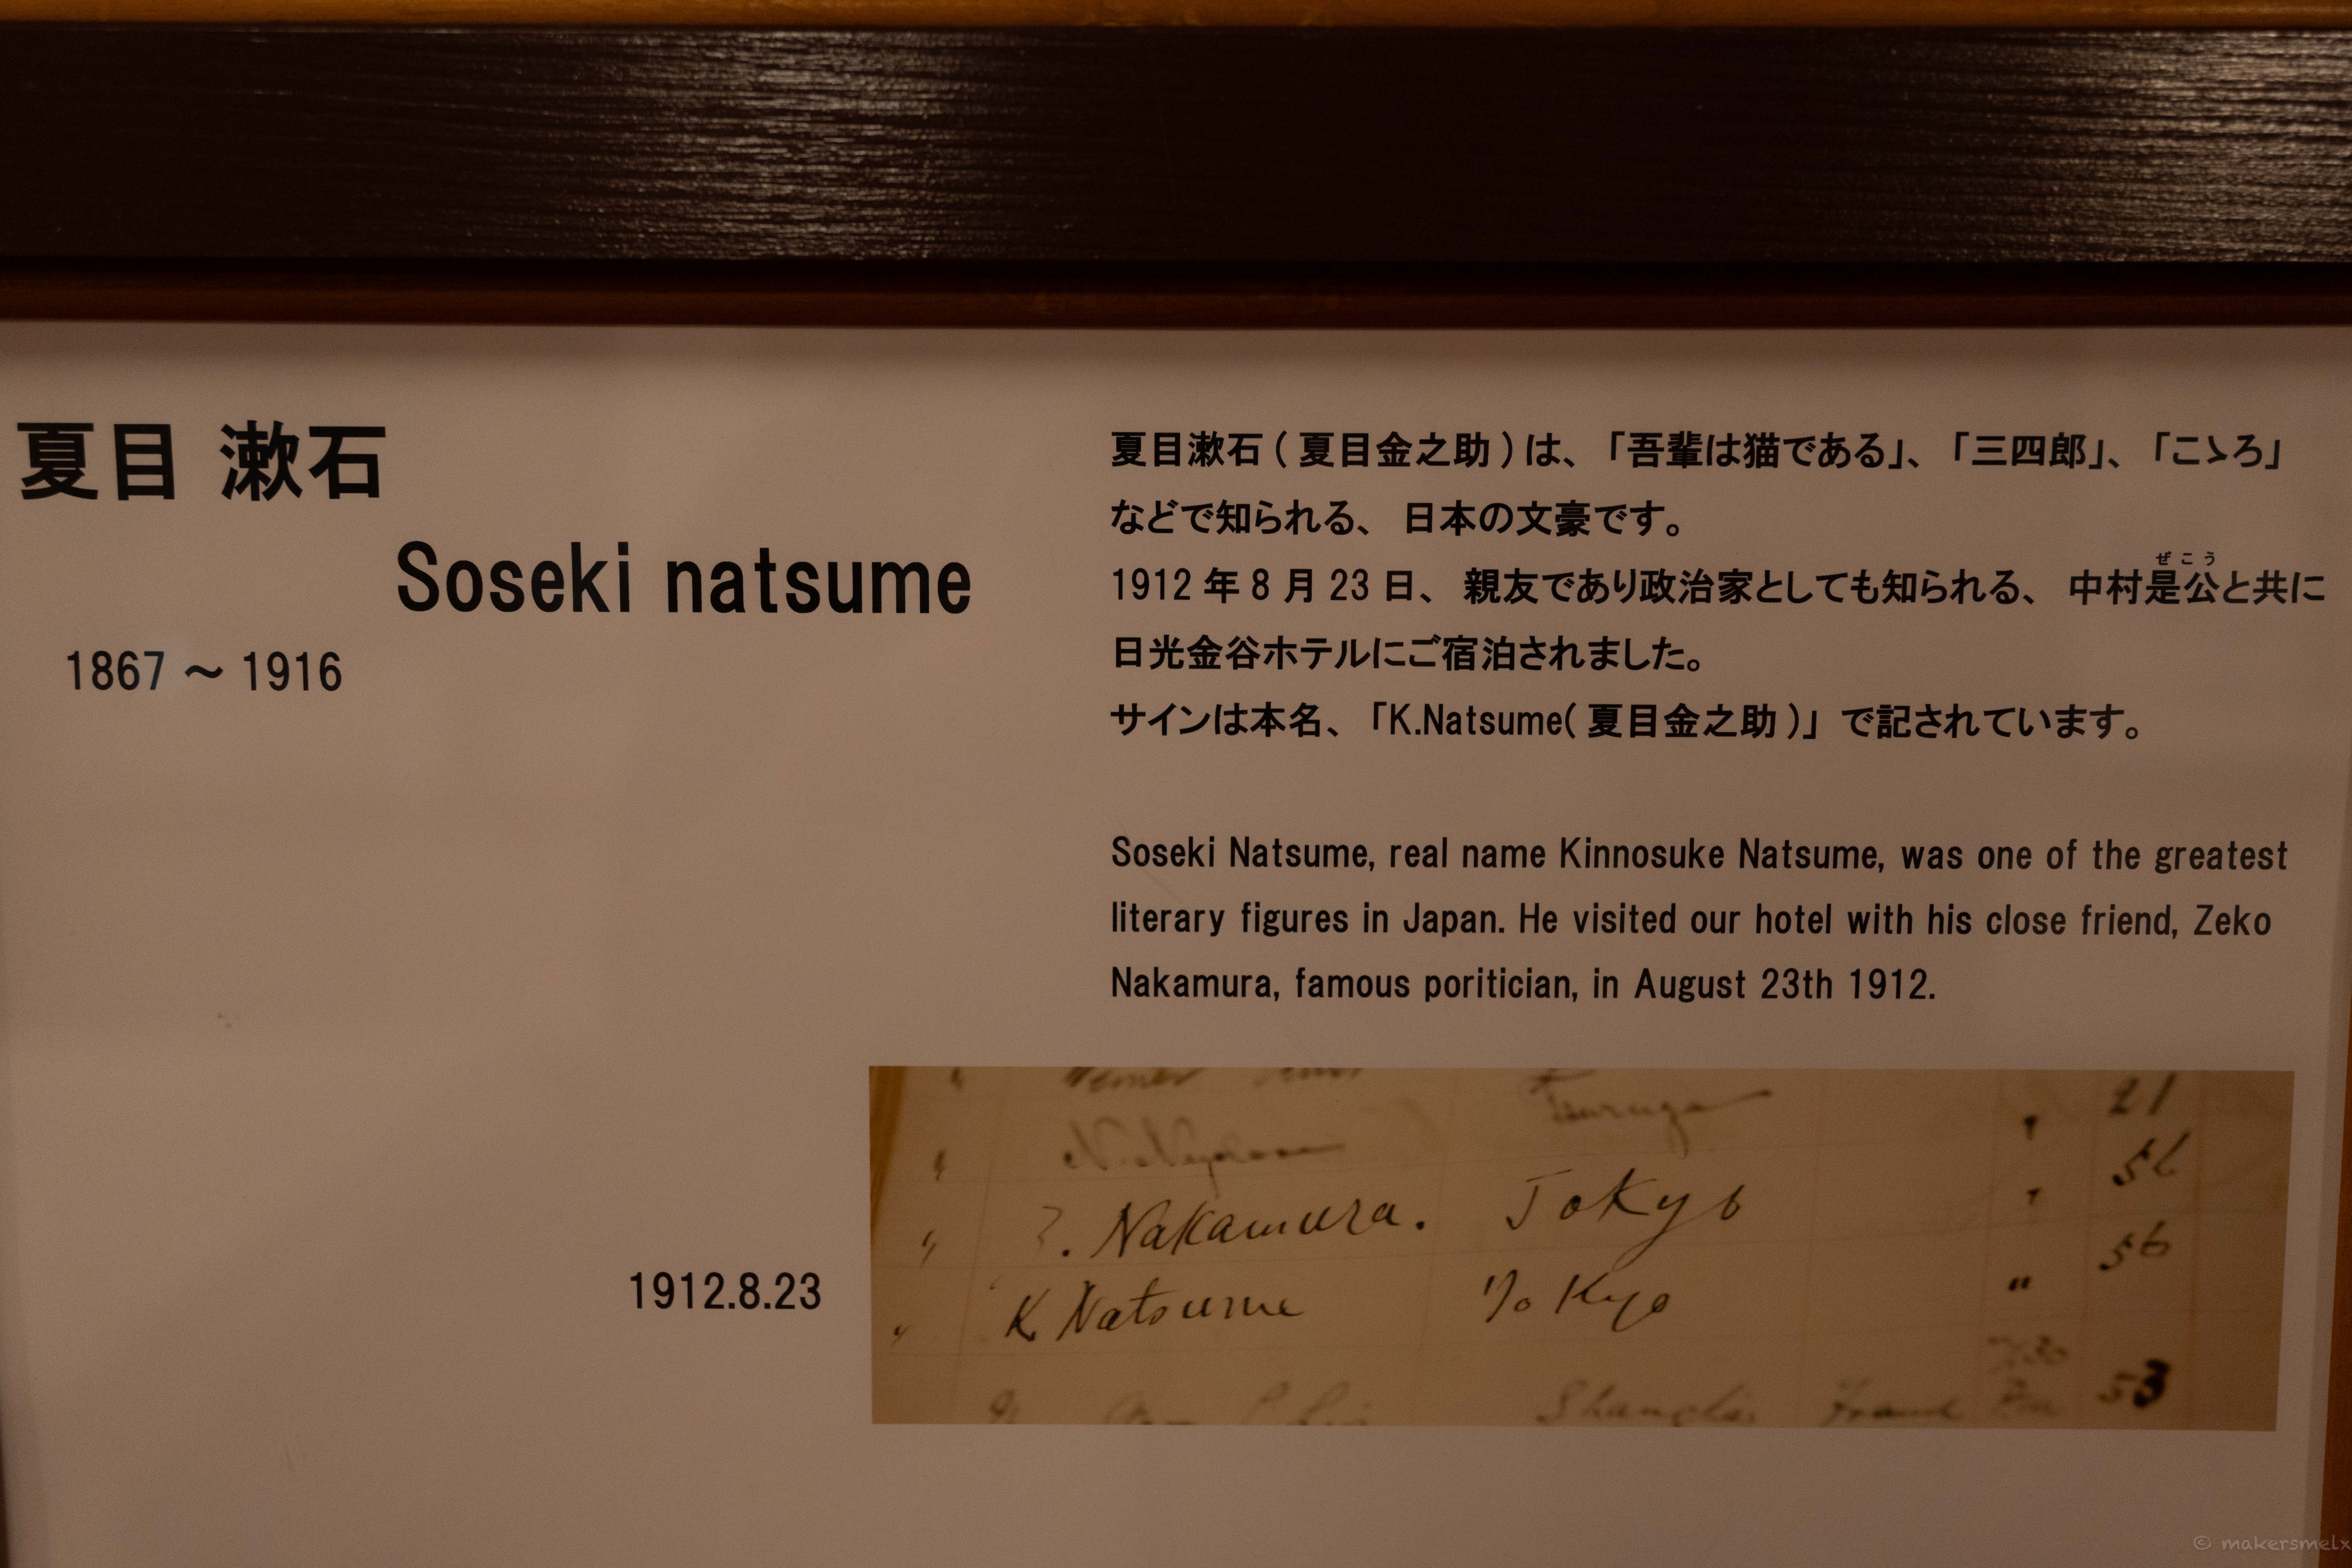 夏目 漱石
Soseki natsume
1867 ～ 1916
夏目漱石 ( 夏目金之助 ) は、「吾輩は猫である」、「三四郎」、「こゝろ」
などで知られる、 日本の文豪です。
ぜこう
1912 年 8 月 23 日、 親友であり政治家としても知られる、 中村是公と共に
日光金谷ホテルにご宿泊されました。
サインは本名、「K.Natsume( 夏目金之助 )」 で記されています。
Soseki Natsume, real name Kinnosuke Natsume, was one of the greatest
literary figures in Japan. He visited our hotel with his close friend, Zeko
Nakamura, famous poritician, in August 23th 1912.
1912.8.23
Tsuruga 21
〃 Nakamura. Tokyo 56
〃 K Natsume Tokyo 〃 56
Shanghai 53
© makersmelx